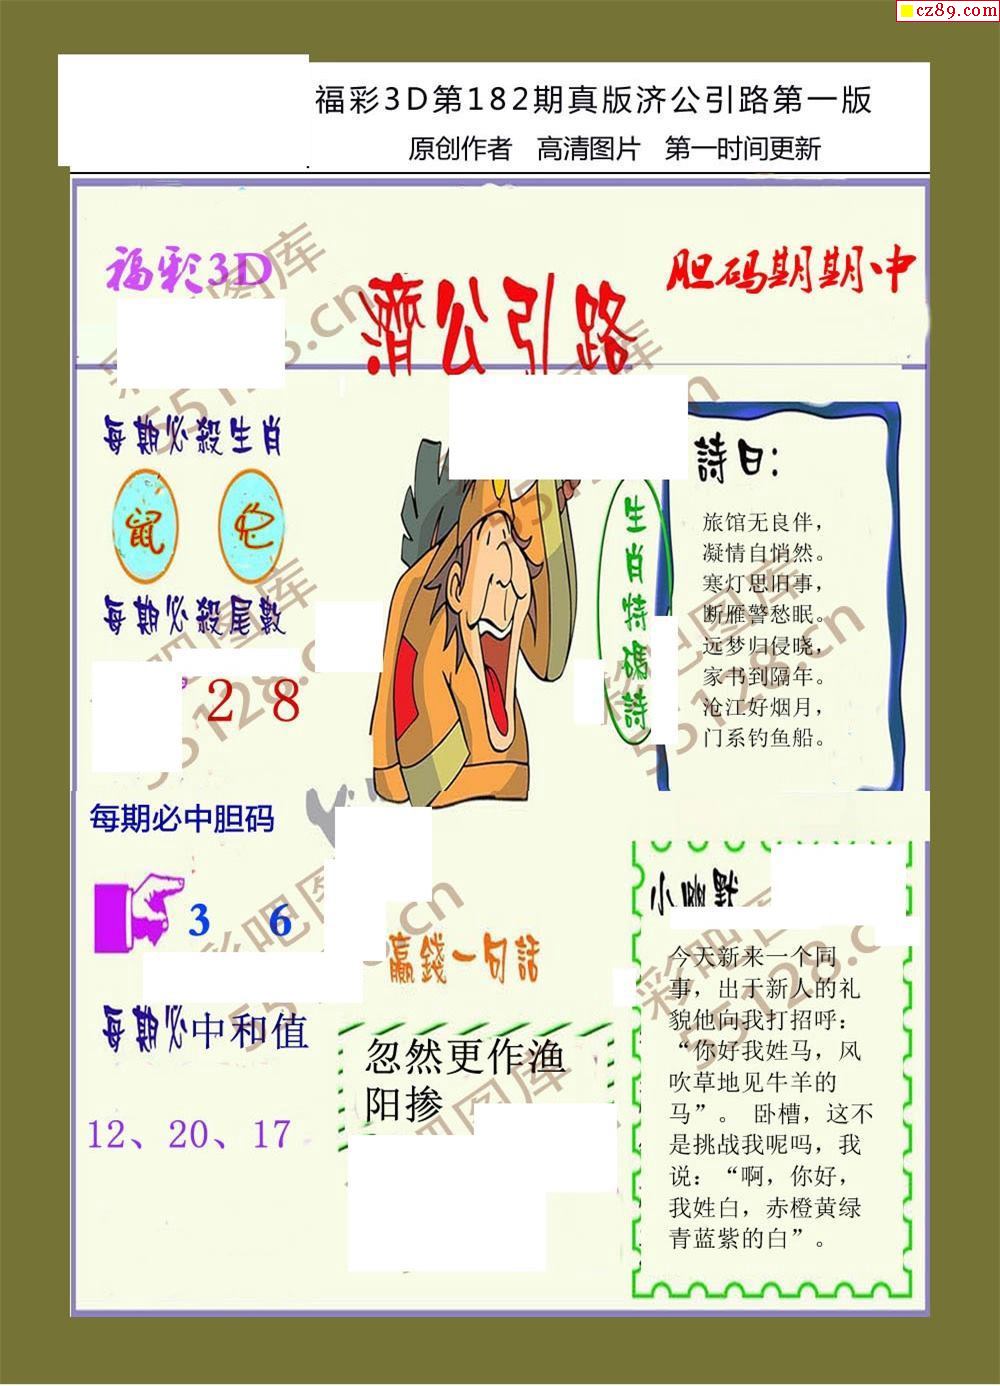 cz89.com
福彩3D第182期真版济公引路第一版
原创作者 高清图片 第一时间更新
福彩3D
濟公引路
胆码期期中
每期必殺生肖
鼠
蛇
每期必殺尾數
2 8
每期必中胆码
3 6
每期必中和值
12、20、17
生肖特碼詩
詩曰：
旅馆无良伴，
凝情自悄然。
寒灯思旧事，
断雁警愁眠。
远梦归侵晓，
家书到隔年。
沧江好烟月，
门系钓鱼船。
赢錢一句話
忽然更作渔
阳掺
小幽默
今天新来一个同
事，出于新人的礼
貌他向我打招呼：
“你好我姓马，风
吹草地见牛羊的
马”。 卧槽，这不
是挑战我呢吗，我
说：“啊，你好，
我姓白，赤橙黄绿
青蓝紫的白”。
彩吧图库
55128.cn